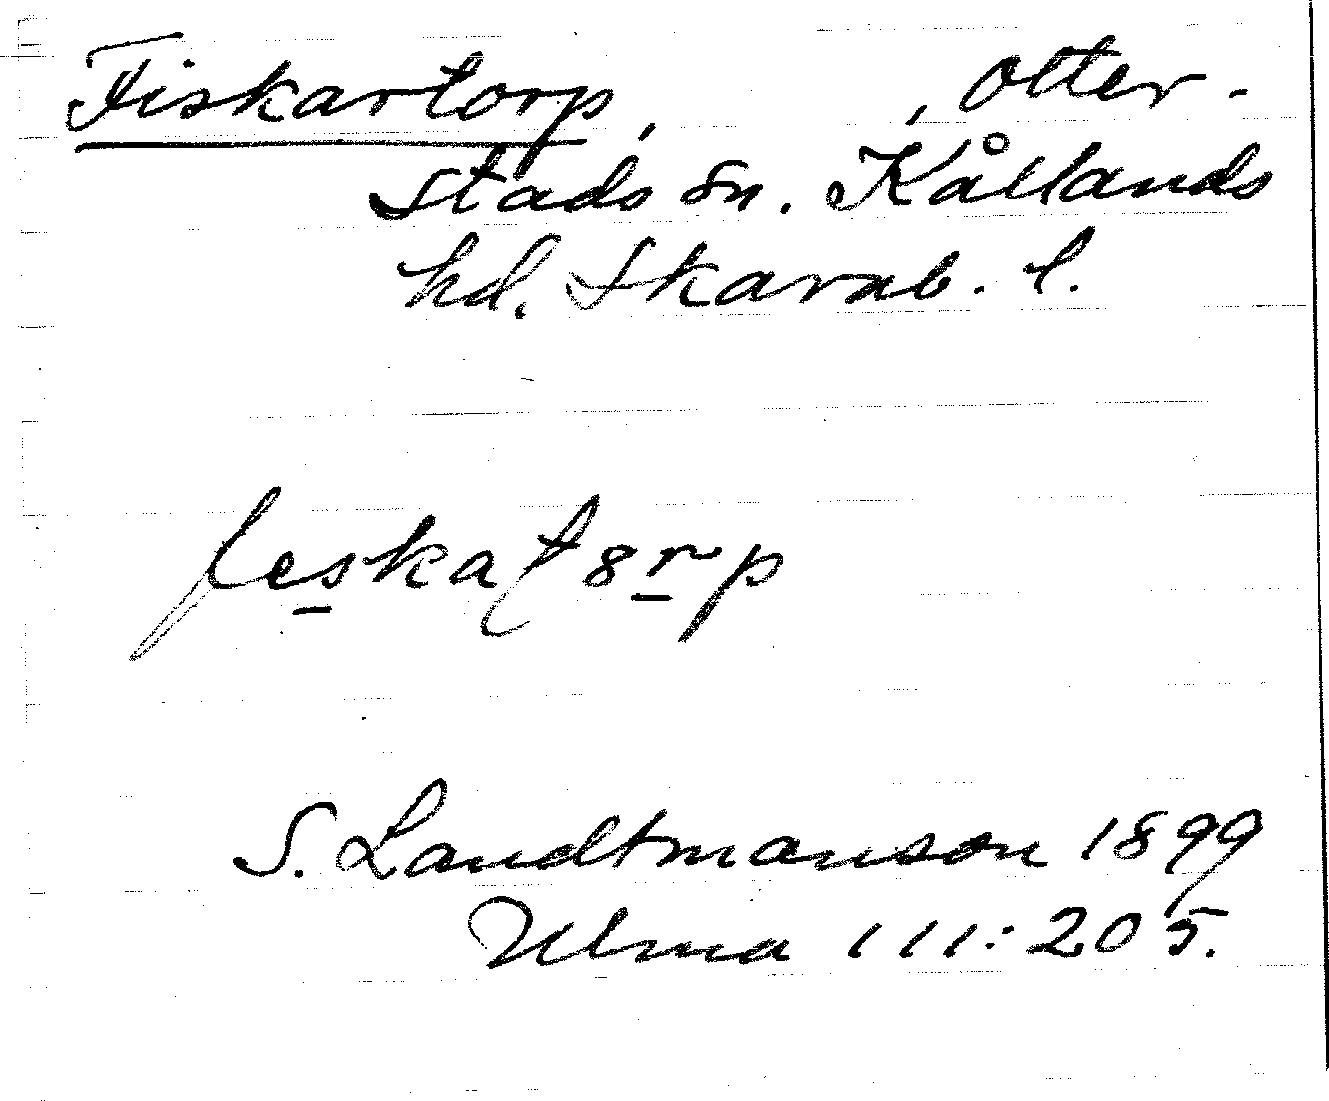 Fiskartorp, , Otter-
stads sn. Kållands
hd. Skarab. l.
feskat8rp
S. Landtmanson 1899
Ulma 111:205.